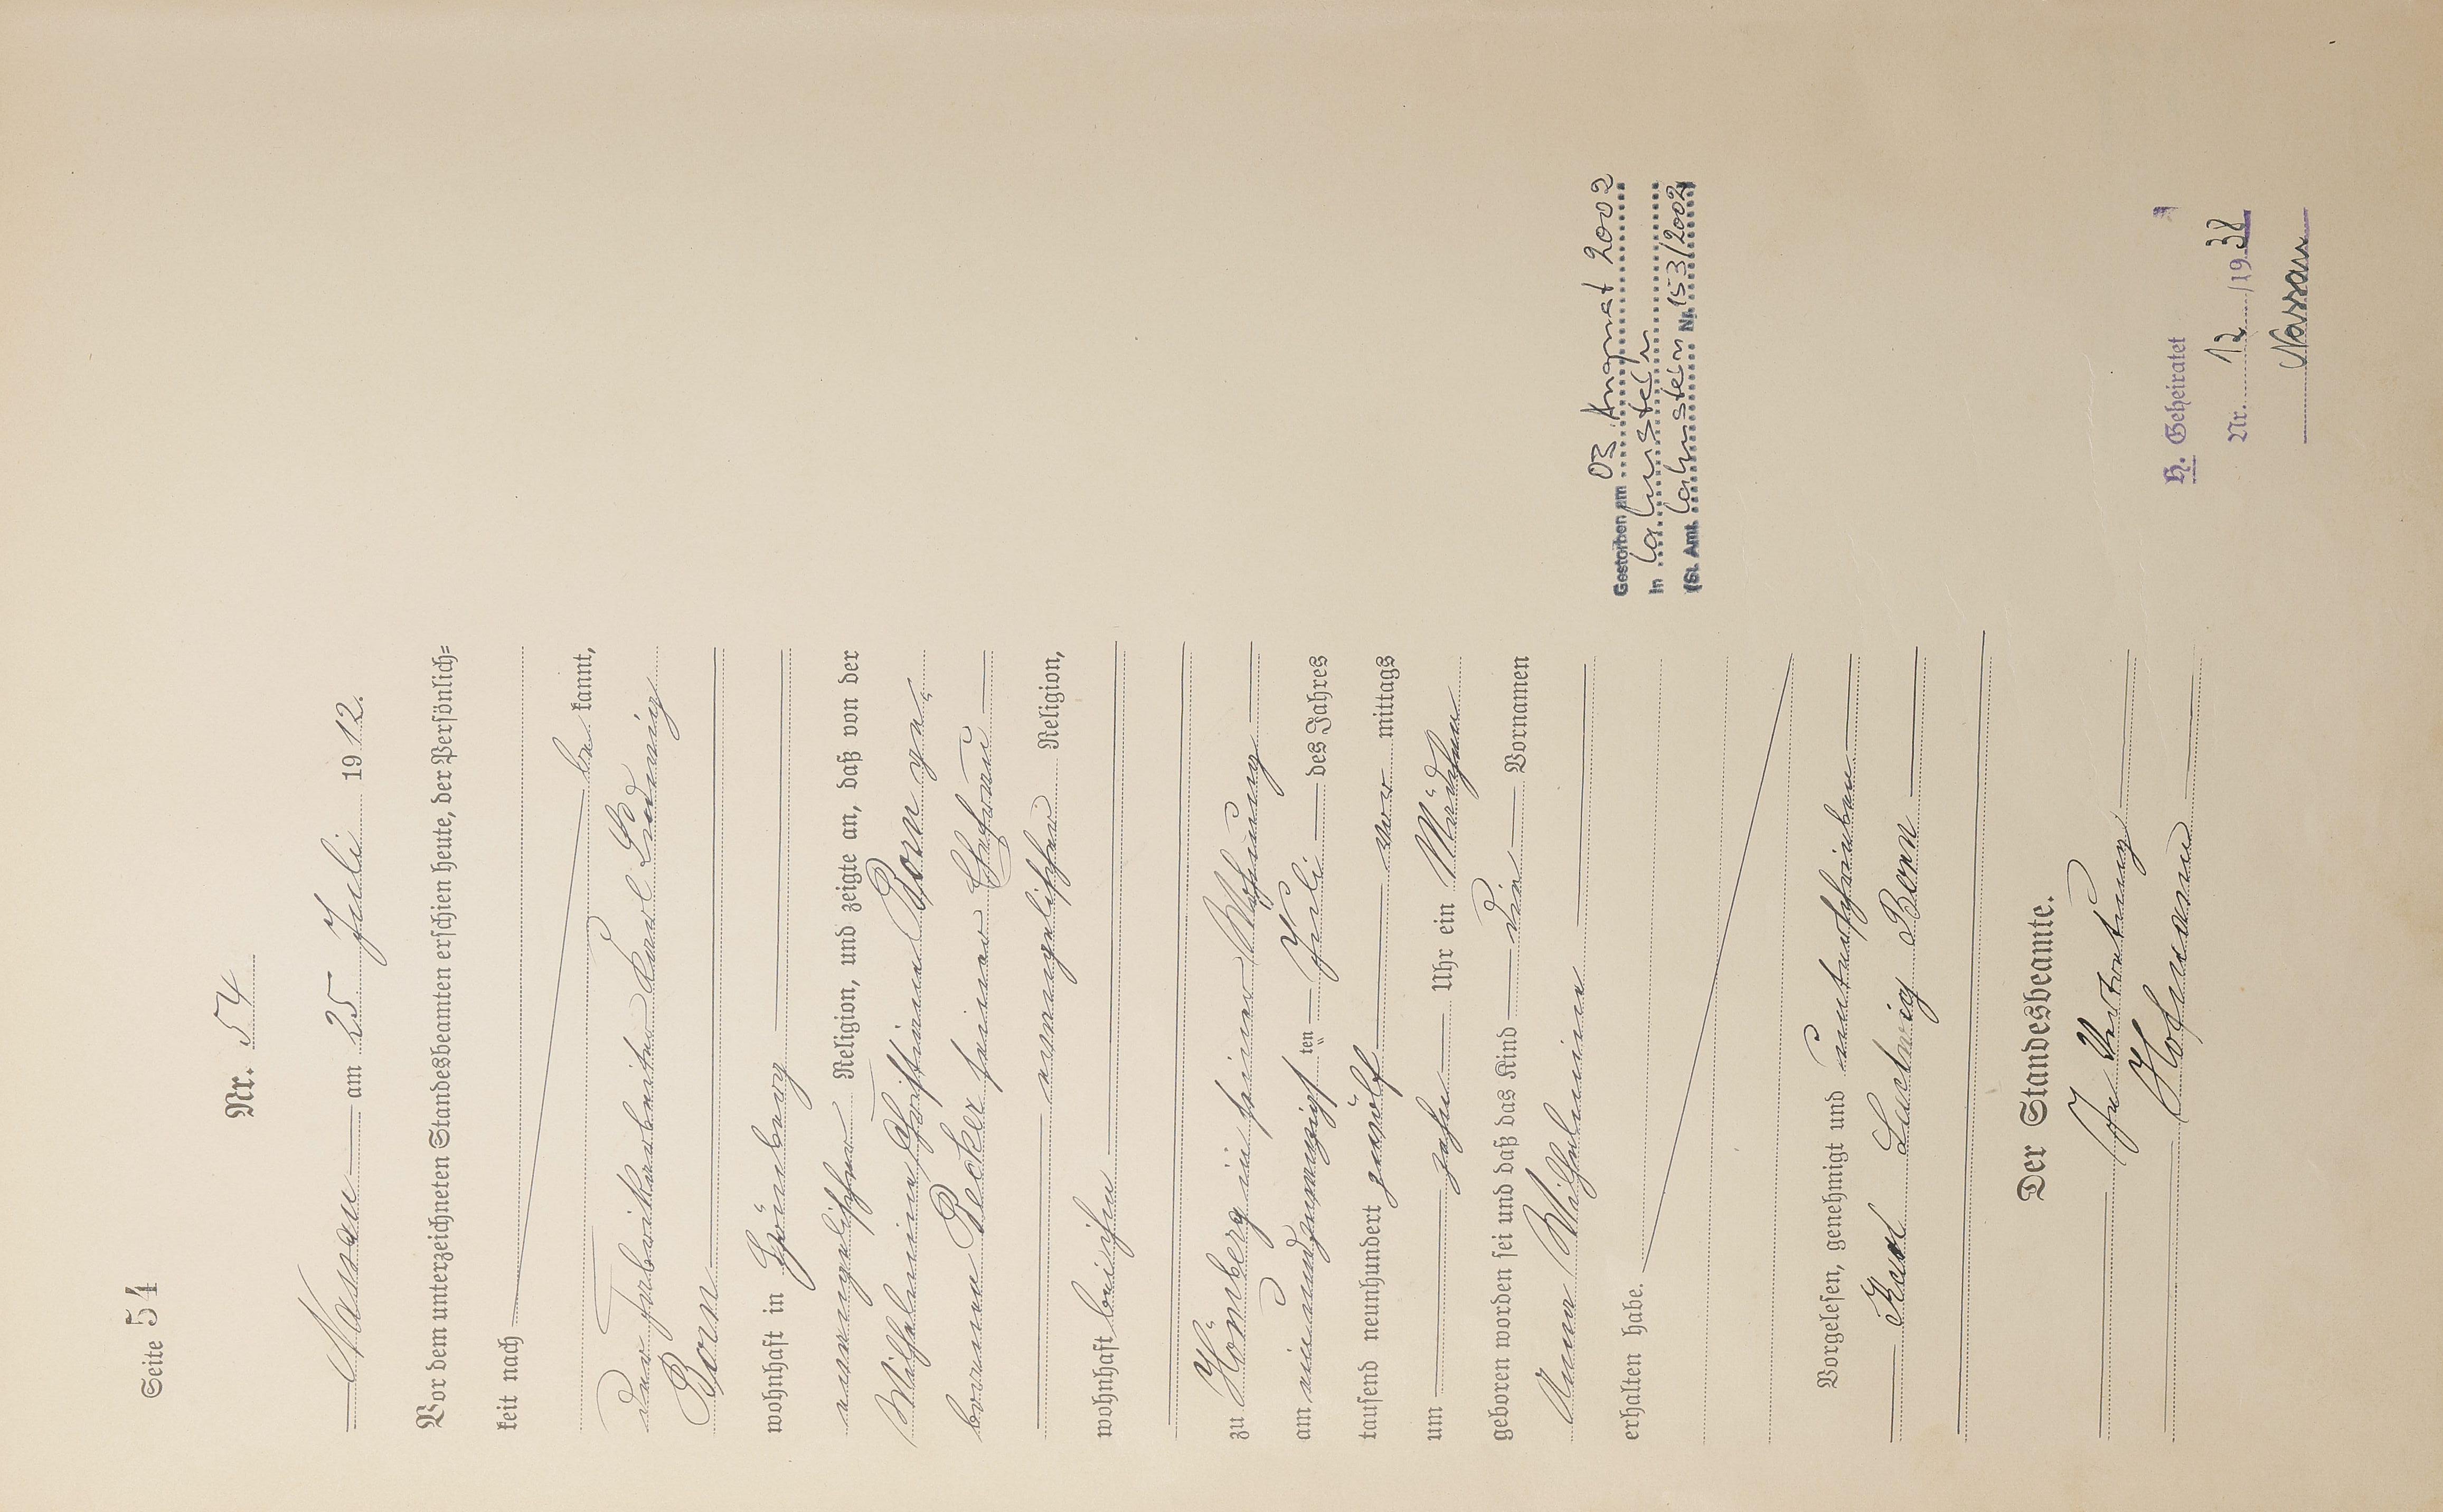 Seite 54
Nr. 54
Nassau am 25 Juli 1912.
Vor dem unterzeichneten Standesbeamten erschien heute, der Persönlich=
keit nach
be kannt,
der Fabrikarbeiter Karl Ludwig
Born
wohnhaft in Hömberg
evangelischer Religion, und zeigte an, daß von der
Wilhelmine Christiane Born ge=
borenen Becker seiner Ehefrau
evangelischer Religion,
wohnhaft bei ihm
zu Hömberg in seiner Wohnung
am einundzwanzigsten Juli des Jahres
tausend neunhundert zwölf vor mittags
um zehn Uhr ein Mädchen
geboren worden sei und daß das Kind die Vornamen
Anna Wilhelmine
erhalten habe.
Vorgelesen, genehmigt und unterschrieben
Karl Ludwig Born
Der Standesbeamte.
In Vertretung
Hofmann
Gestorben am 03 August 2002
in Lahnstein
(St. Amt. Lahnstein Nr. 153/2002)
H. Geheiratet
Nr. 12/1938
Nassau